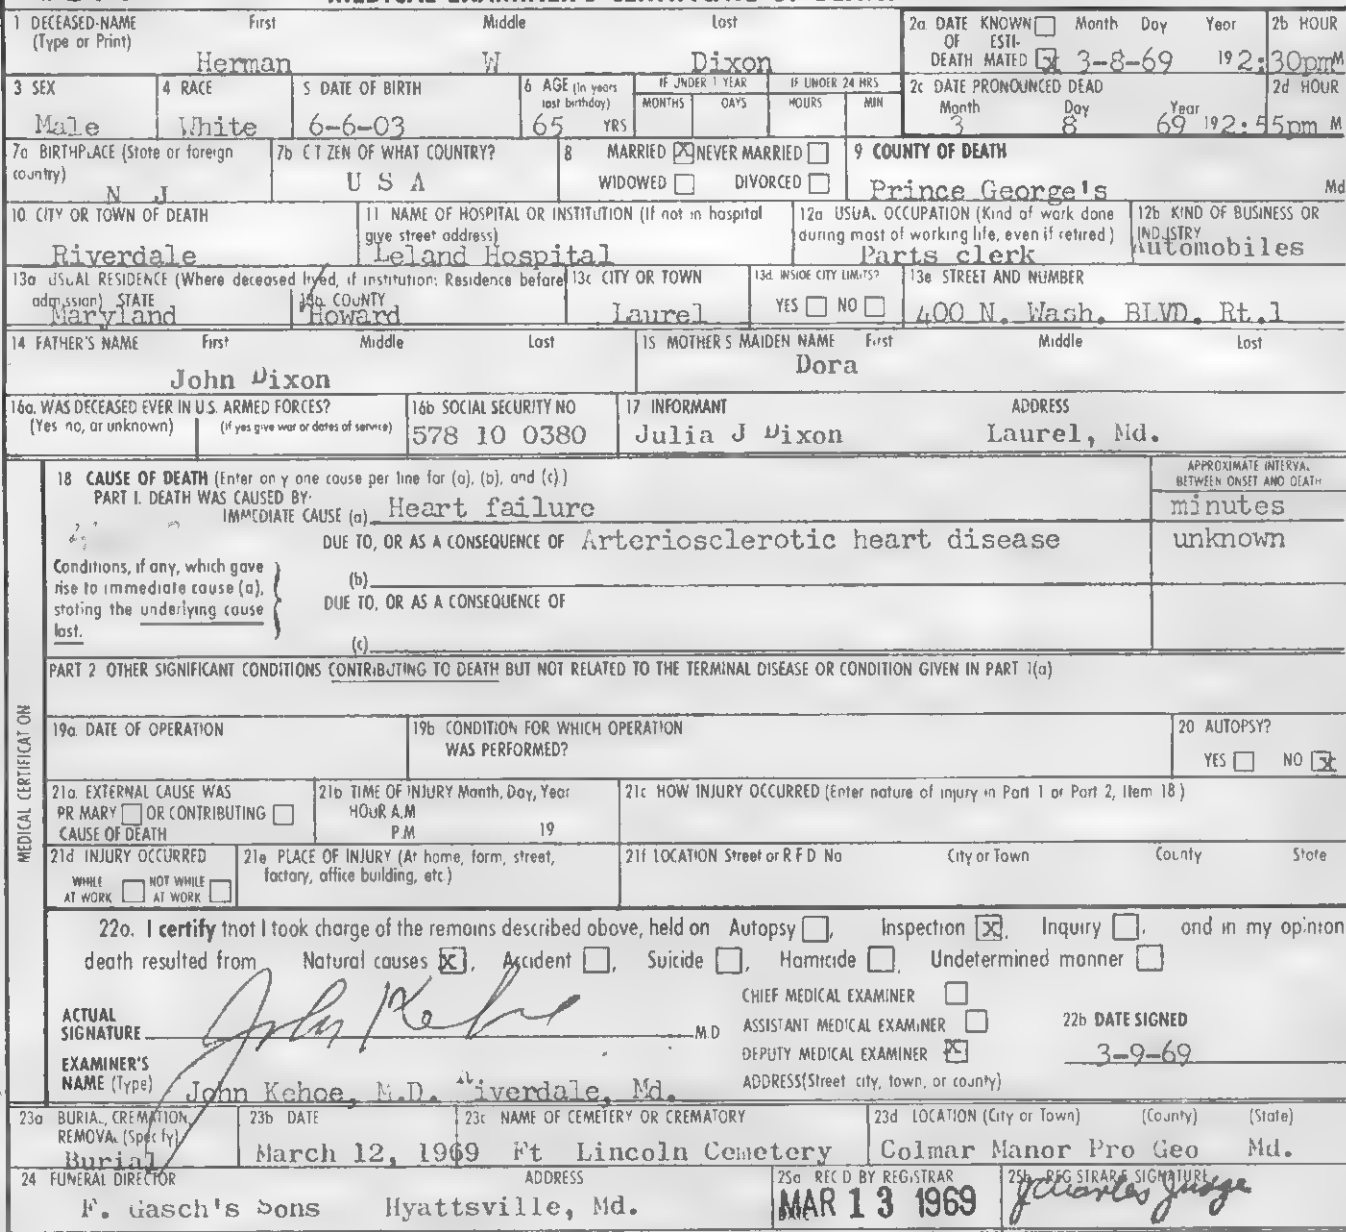 1 DECEASED-NAME First Middle Last
(Type or Print)
Herman W Dixon
2a. DATE KNOWN Month Day Year
OF ESTI-
DEATH MATED x 3-8-69 19
2b HOUR
2:30pm M
3 SEX
Male
4 RACE
White
5 DATE OF BIRTH
6-6-03
6 AGE (In years last birthday)
65 YRS
IF UNDER 1 YEAR
MONTHS DAYS
IF UNDER 24 HRS
HOURS MIN
2c DATE PRONOUNCED DEAD
Month Day Year
3 8 69 19
2d HOUR
2:55pm M
7a BIRTHPLACE (State or foreign
country)
N J
7b CITIZEN OF WHAT COUNTRY?
U S A
8 MARRIED X NEVER MARRIED
WIDOWED DIVORCED
9 COUNTY OF DEATH
Prince George's Md
10 CITY OR TOWN OF DEATH
Riverdale
11 NAME OF HOSPITAL OR INSTITUTION (If not in hospital
give street address)
Leland Hospital
12a USUAL OCCUPATION (Kind of work done
during most of working life, even if retired)
Parts clerk
12b KIND OF BUSINESS OR
INDUSTRY
Automobiles
13a USUAL RESIDENCE (Where deceased lived, if institution: Residence before
admission) STATE
Maryland
13b COUNTY
Howard
13c CITY OR TOWN
Laurel
13d. INSIDE CITY LIMITS?
YES NO
13e STREET AND NUMBER
400 N. Wash. BLVD. Rt.1
14 FATHER'S NAME First Middle Last
John Dixon
15 MOTHER'S MAIDEN NAME First Middle Last
Dora
16a. WAS DECEASED EVER IN U.S. ARMED FORCES?
(Yes no, or unknown) (If yes give war or dates of service)
16b SOCIAL SECURITY NO
578 10 0380
17 INFORMANT ADDRESS
Julia J Dixon Laurel, Md.
MEDICAL CERTIFICATION
18 CAUSE OF DEATH (Enter only one cause per line for (a), (b), and (c).)
PART I. DEATH WAS CAUSED BY:
IMMEDIATE CAUSE (a) Heart failure
DUE TO, OR AS A CONSEQUENCE OF Arteriosclerotic heart disease
APPROXIMATE INTERVAL
BETWEEN ONSET AND DEATH
minutes
unknown
Conditions, if any, which gave
rise to immediate cause (a),
stating the underlying cause
last.
(b)
DUE TO, OR AS A CONSEQUENCE OF
(c)
PART 2 OTHER SIGNIFICANT CONDITIONS CONTRIBUTING TO DEATH BUT NOT RELATED TO THE TERMINAL DISEASE OR CONDITION GIVEN IN PART 1(a)
19a. DATE OF OPERATION
19b CONDITION FOR WHICH OPERATION
WAS PERFORMED?
20 AUTOPSY?
YES NO x
21a. EXTERNAL CAUSE WAS
PRIMARY OR CONTRIBUTING
CAUSE OF DEATH
21b TIME OF INJURY Month, Day, Year
HOUR A.M
P.M 19
21c HOW INJURY OCCURRED (Enter nature of injury in Part 1 or Part 2, Item 18)
21d INJURY OCCURRED
WHILE AT WORK NOT WHILE AT WORK
21e PLACE OF INJURY (At home, farm, street,
factory, office building, etc)
21f LOCATION Street or R F D No City or Town County State
22a. I certify that I took charge of the remains described above, held on Autopsy , Inspection x , Inquiry , and in my opinion
death resulted from Natural causes X , Accident , Suicide , Homicide , Undetermined manner
ACTUAL
SIGNATURE John Kehoe M D
CHIEF MEDICAL EXAMINER
ASSISTANT MEDICAL EXAMINER
DEPUTY MEDICAL EXAMINER X
22b DATE SIGNED
3-9-69
EXAMINER'S
NAME (Type) John Kehoe, M.D. Riverdale, Md.
ADDRESS(Street city, town, or county)
23a BURIAL, CREMATION,
REMOVAL (Specify)
Burial
23b DATE
March 12, 1969
23c NAME OF CEMETERY OR CREMATORY
Ft Lincoln Cemetery
23d LOCATION (City or Town) (County) (State)
Colmar Manor Pro Geo Md.
24 FUNERAL DIRECTOR ADDRESS
F. Gasch's Sons Hyattsville, Md.
25a REC'D BY REGISTRAR
DATE
MAR 13 1969
25b REGISTRAR'S SIGNATURE
J Charles Judge